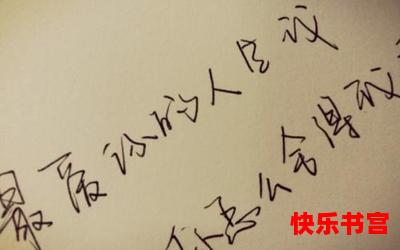 最爱你的人是我
你怎么舍得我
快乐书宫